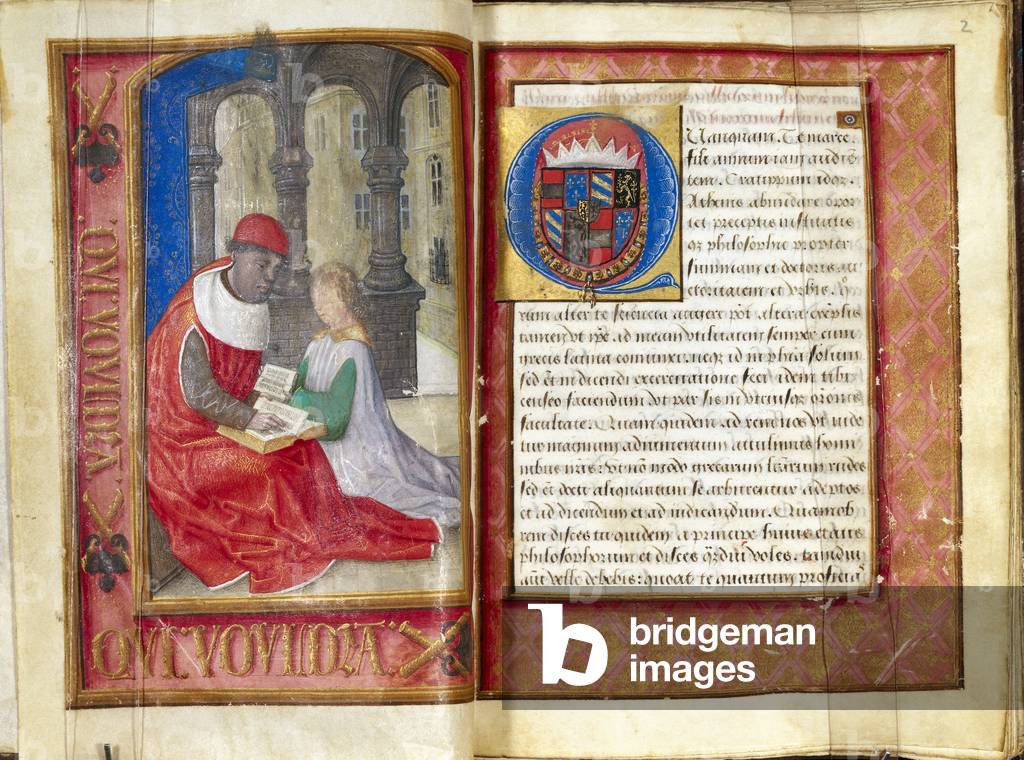 QVI·VOVLDZA·
QVI·VOVLDZA·
2
Uanquam te marce
fili annum iam audiē
tem. Cratippum idqз.
Athenis abundare opor
tet preceptis institutis
qз philosophie propter
summam et doctoris au
ctoritatem et vrbis.
rum alter te scientia augere pōt altera exemplis
tamen vt ipse ad meam vtilitatem semper cum
grecis latina coniunxi. neqз id in phīa solum
sed et in dicendi exercitatione feci idem tibi
censeo faciendum
facultate. Quam quidem ad rem nos vt uide
mur magnum adiumentum attulimus homi
nibus nīris: vt nō modo grecarum lrārum rudes
sed et docti aliquantum se arbitrentur adeptos
et ad dicendum et ad iudicandum. Quamob
rem disces tu quidem a principe huius etatis
philosophorum et disces qʒdiu voles. tamdiu
aūt velle debebis: quoad te quantum proficiā
b
bridgeman
images